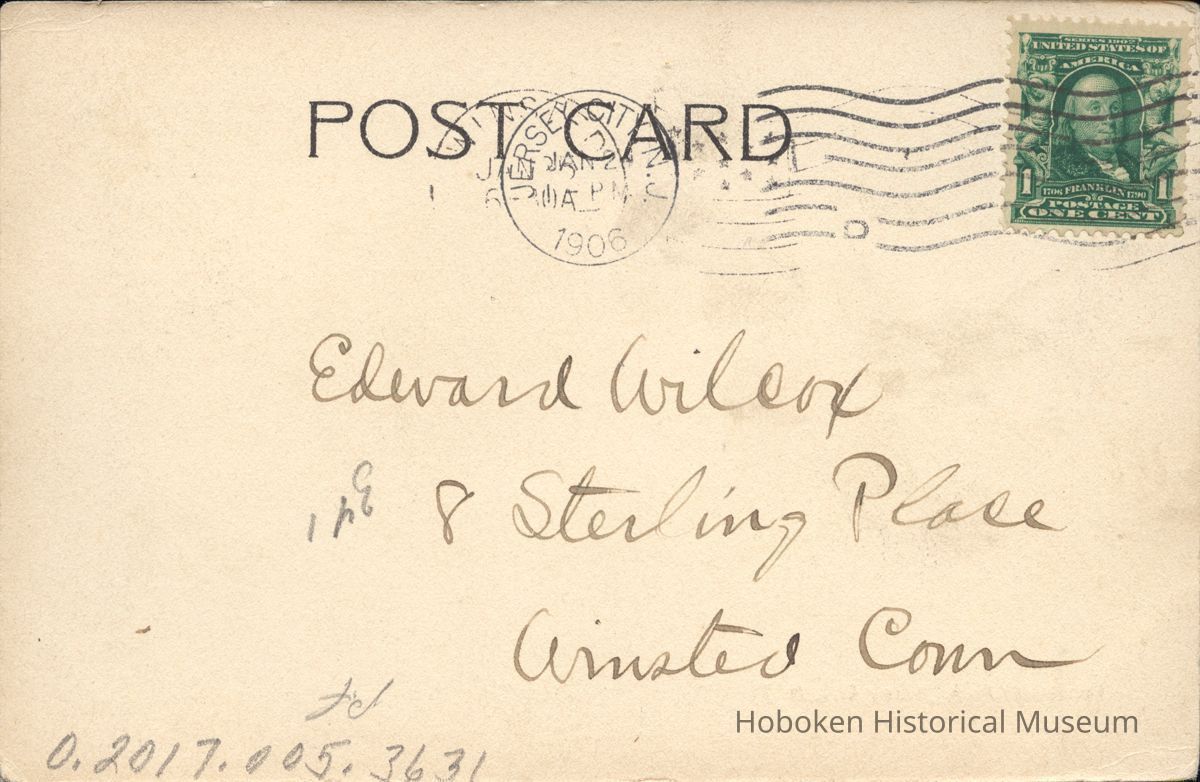 POST CARD
JERSEY CITY N.J.
JAN 2
PM
1906
D
SERIES 1902
UNITED STATES OF
AMERICA
1 1706 FRANKLIN 1790 1
POSTAGE
ONE CENT
Edward Wilcox
8 Sterling Place
Winsted Conn
0.2017.005.3631
Hoboken Historical Museum